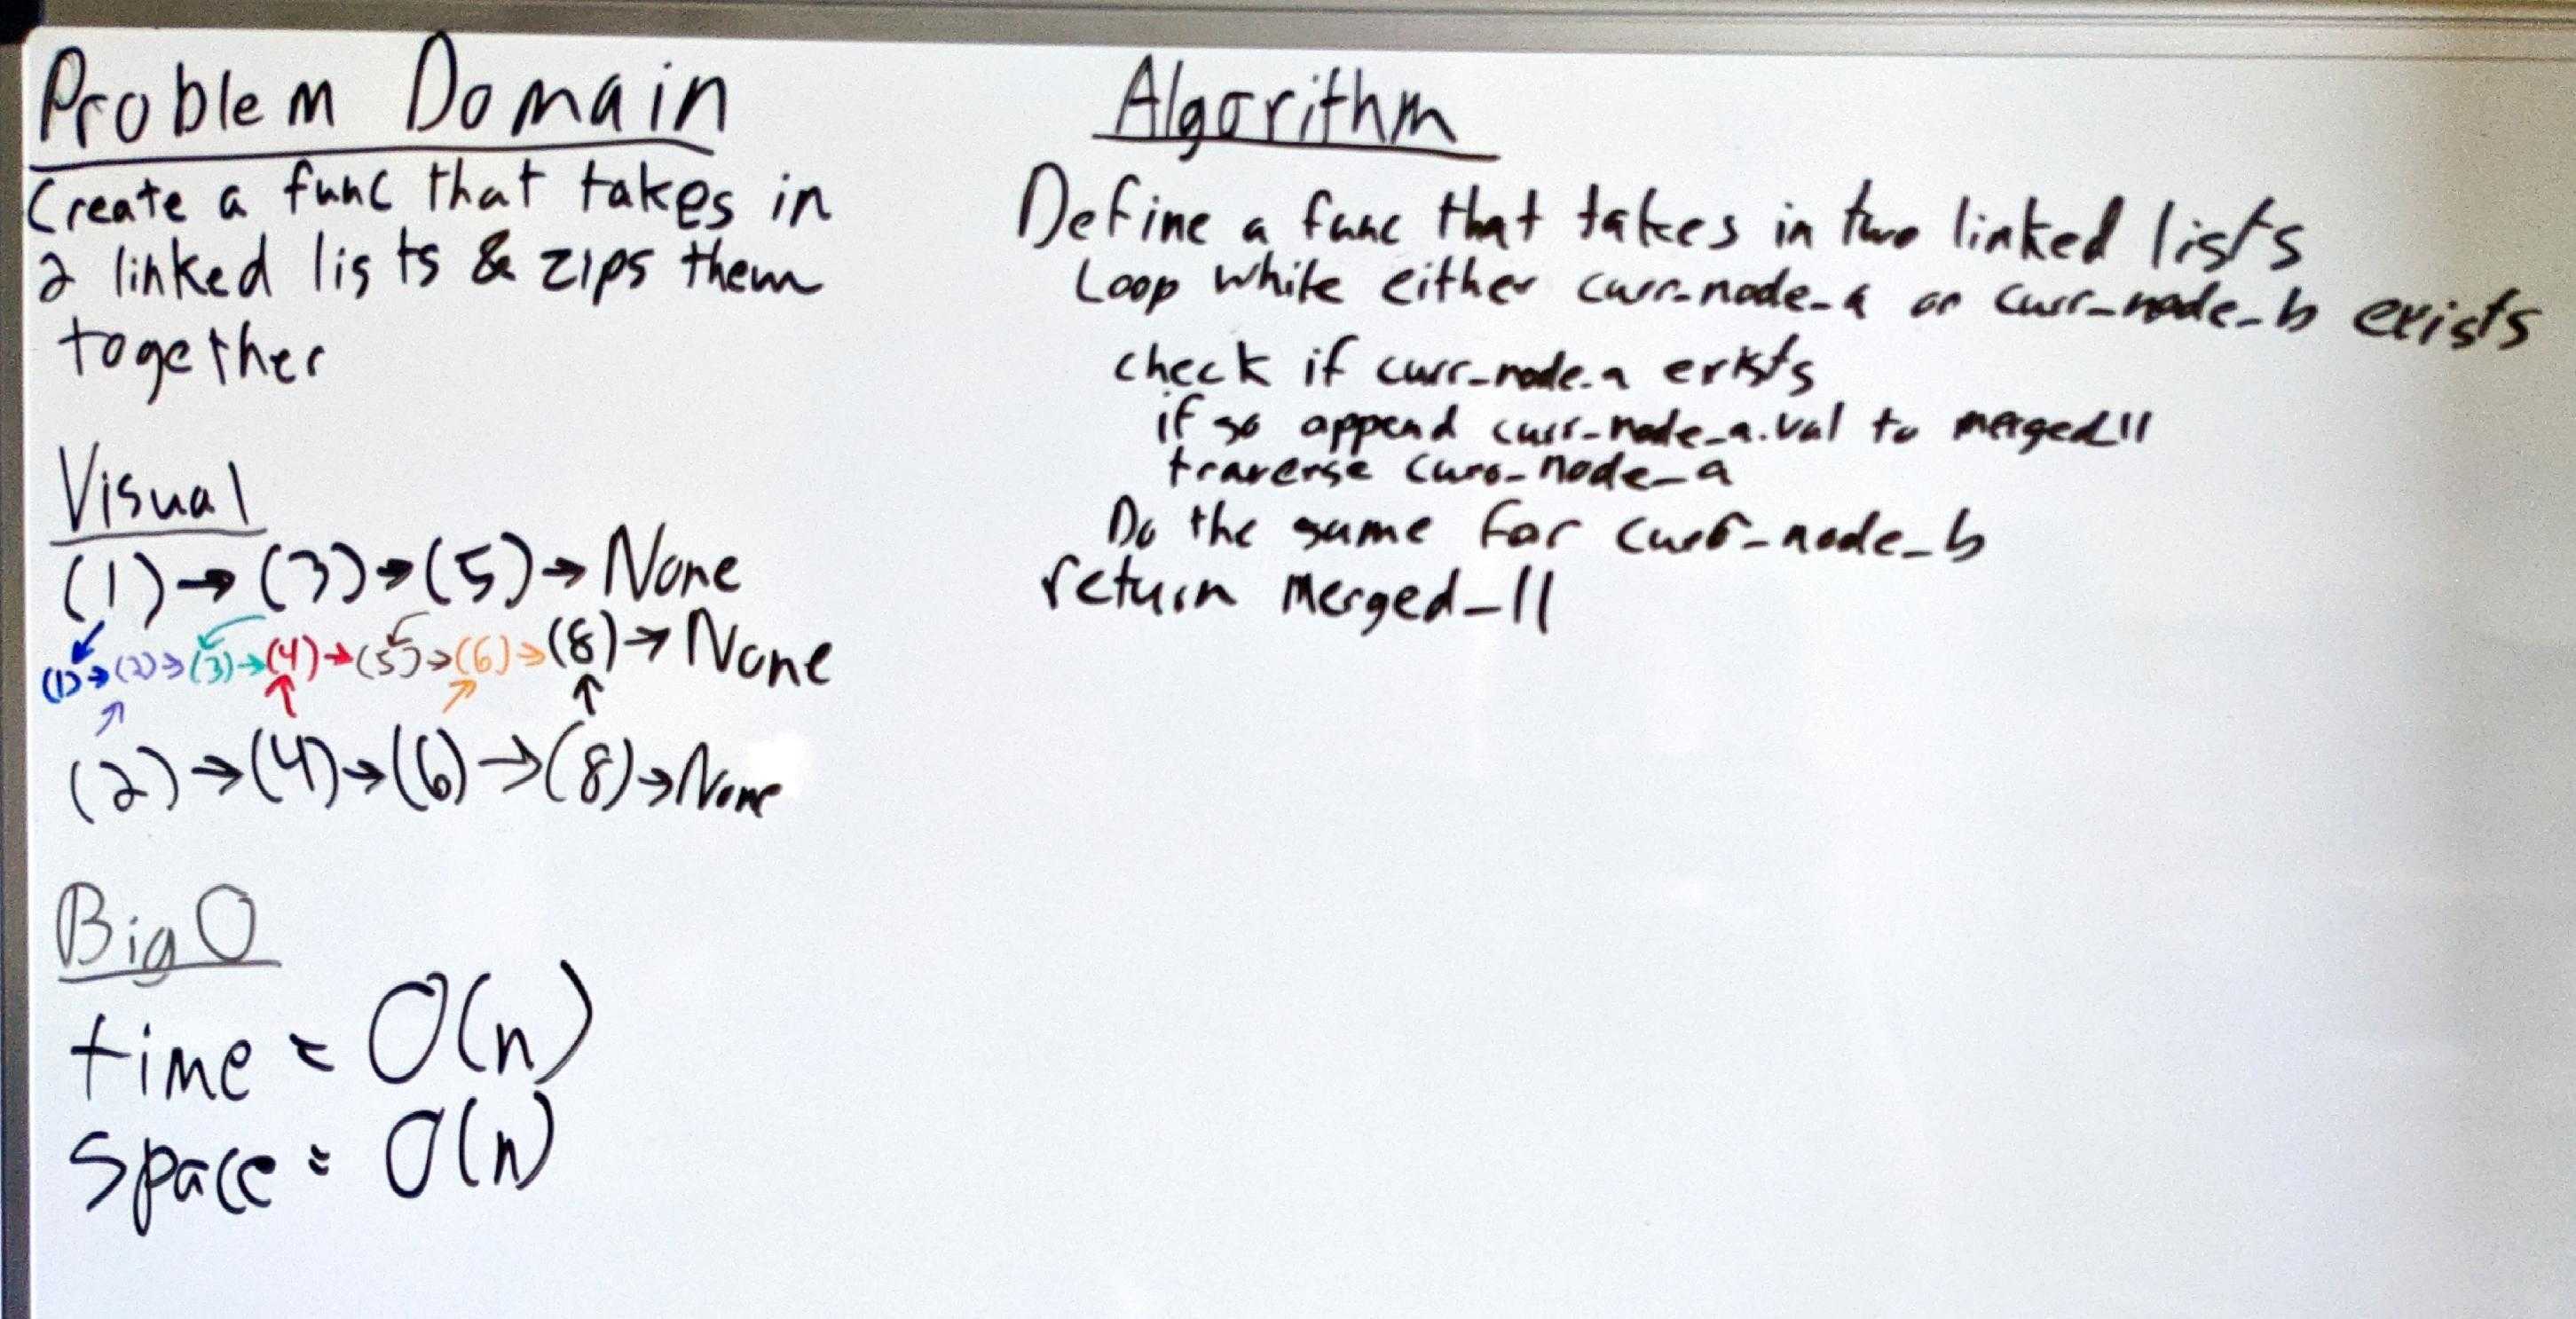 Problem Domain
Create a func that takes in
2 linked lists & zips them
together
Visual
(1)→(3)→(5)→None
(1)→(2)→(3)→(4)→(5)→(6)→(8)→None
(2)→(4)→(6)→(8)→None
Big O
time = O(n)
space = O(n)
Algorithm
Define a func that takes in two linked lists
Loop while either curr_node_a or curr_node_b exists
check if curr_node_a exists
if so append curr_node_a.val to merged_ll
traverse curr_node_a
Do the same for curr_node_b
return merged_ll